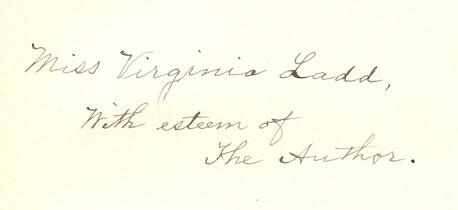 Miss Virginia Ladd,
With esteem of
The Author.